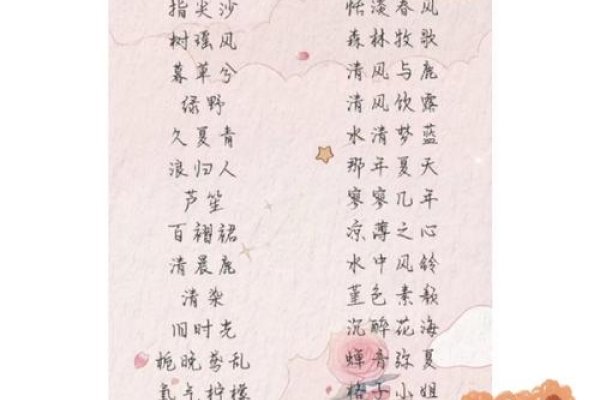 指尖沙
树瑶风
暮草兮
绿野
久夏青
浪归人
芦笙
百褶裙
清晨鹿
清染
旧时光
栀晚鸳乱
氧气柠檬
恬淡春风
森林牧歌
清风与鹿
清风饮露
水清梦蓝
那年夏天
寥寥几年
凉薄之心
水中风铃
堇色素颜
沉醉花海
蝉音弥夏
格子小姐